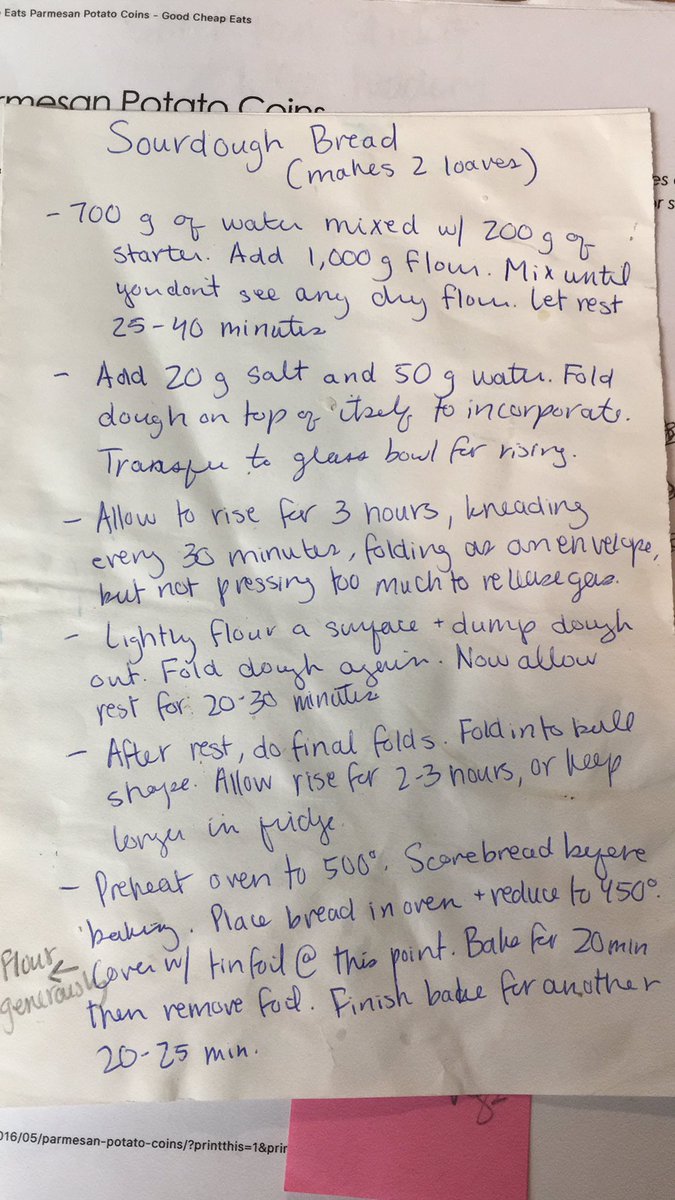 Eats Parmesan Potato Coins - Good Cheap Eats
rmesan Potato Coins
Sourdough Bread
(makes 2 loaves)
- 700 g of water mixed w/ 200 g of
starter. Add 1,000 g flour. Mix until
you don't see any dry flour. Let rest
25-40 minutes
- Add 20 g salt and 50 g water. Fold
dough on top of itself to incorporate.
Transfer to glass bowl for rising.
- Allow to rise for 3 hours, kneading
every 30 minutes, folding as an envelope,
but not pressing too much to release gas.
- Lightly flour a surface + dump dough
out. Fold dough again. Now allow
rest for 20-30 minutes
- After rest, do final folds. Fold into ball
shape. Allow rise for 2-3 hours, or keep
longer in fridge.
- Preheat oven to 500°. Score bread before
baking. Place bread in oven + reduce to 450°.
Cover w/ tinfoil @ this point. Bake for 20 min
then remove foil. Finish bake for another
20-25 min.
Flour
generously
016/05/parmesan-potato-coins/?printthis=1&prin